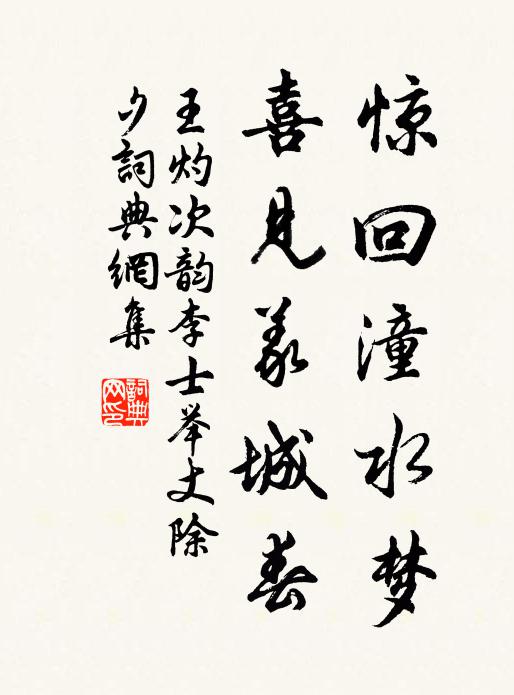 惊回潼水梦
喜见义城春
王灼次韵李士举丈除
夕词典網集
詞典网印